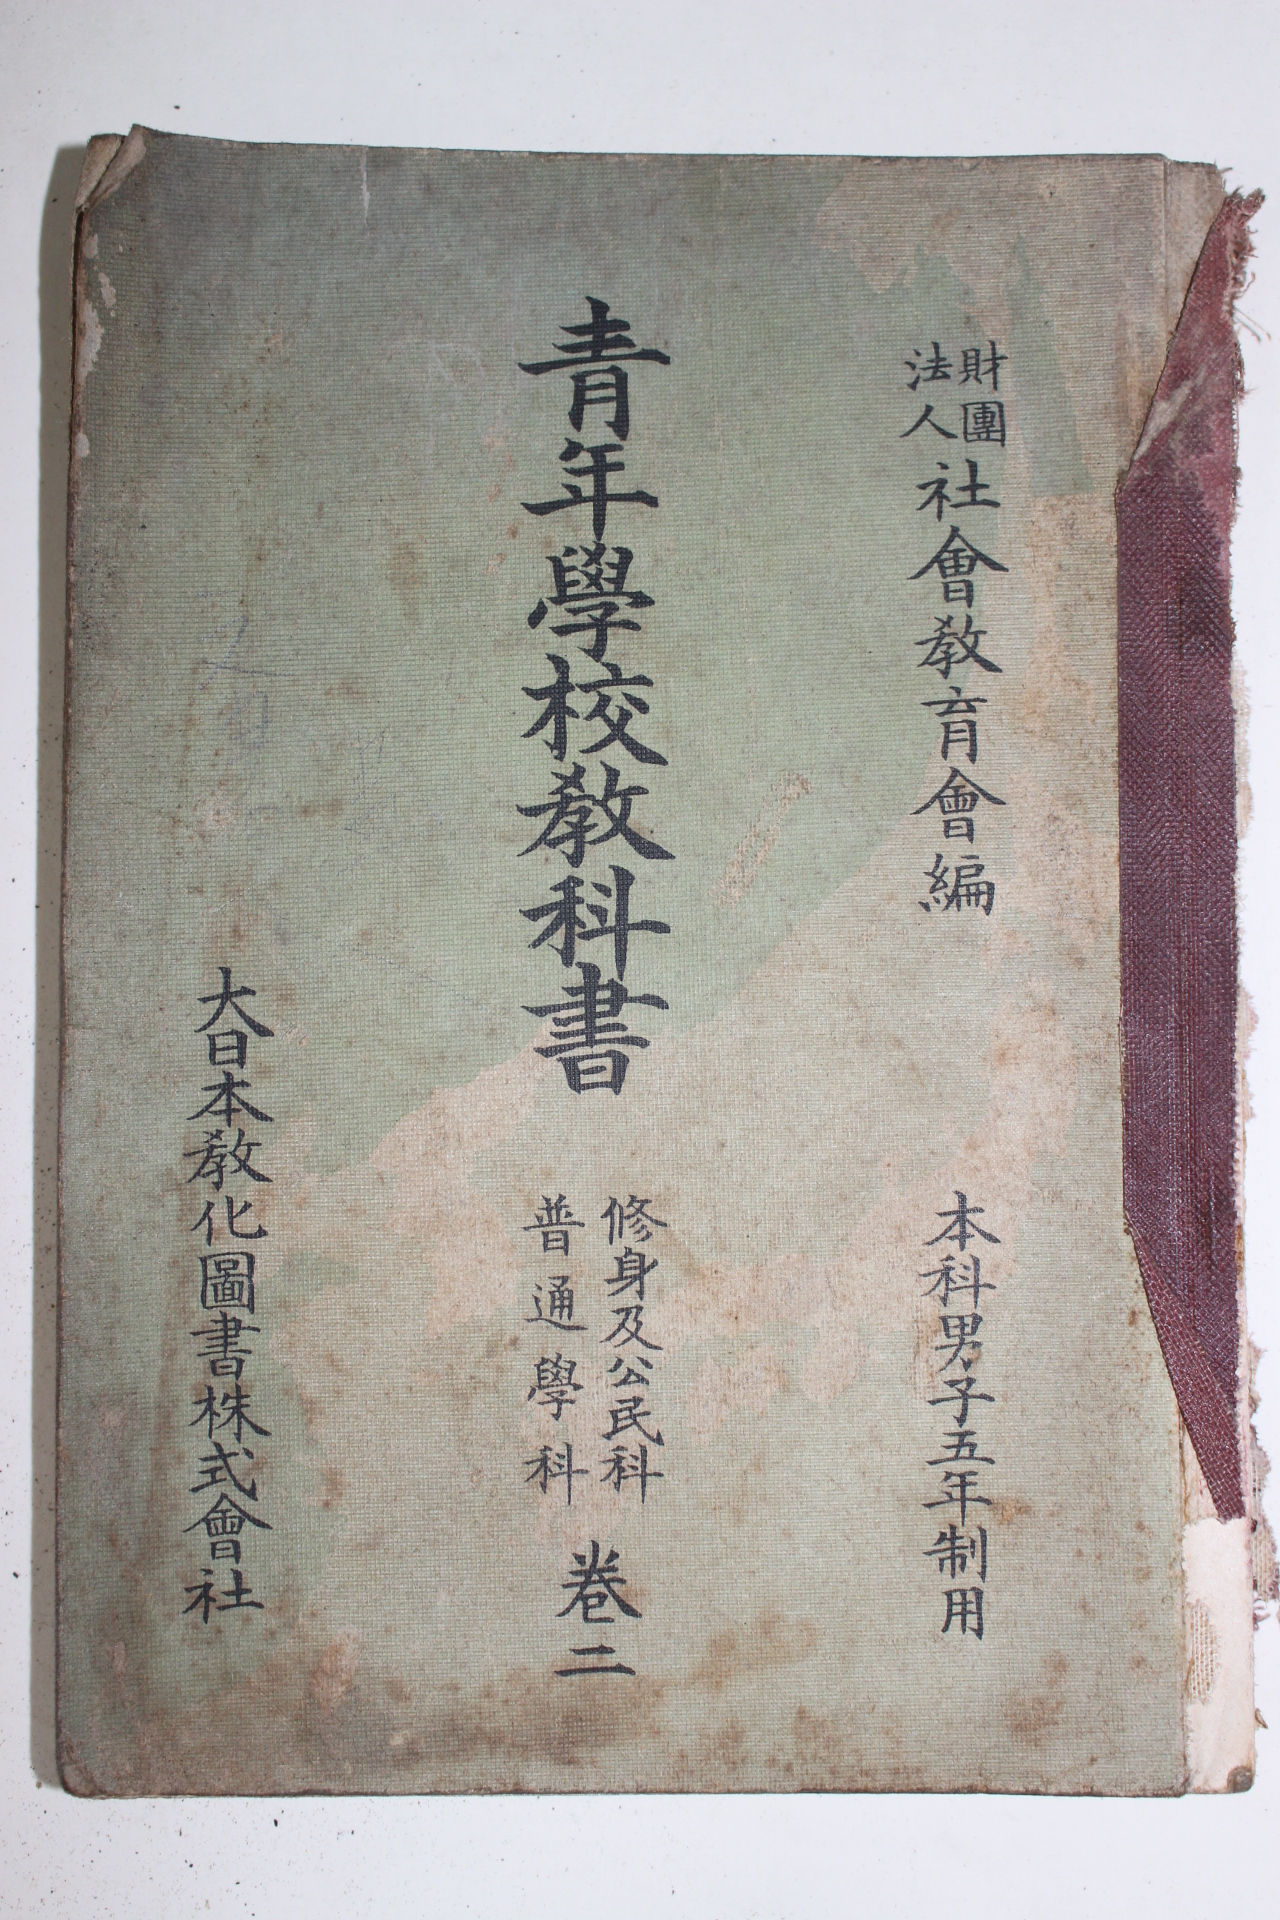 財團
法人
社會教育會編
本科男子五年制用
青年學校教科書
修身及公民科
普通學科
卷二
大日本教化圖書株式會社